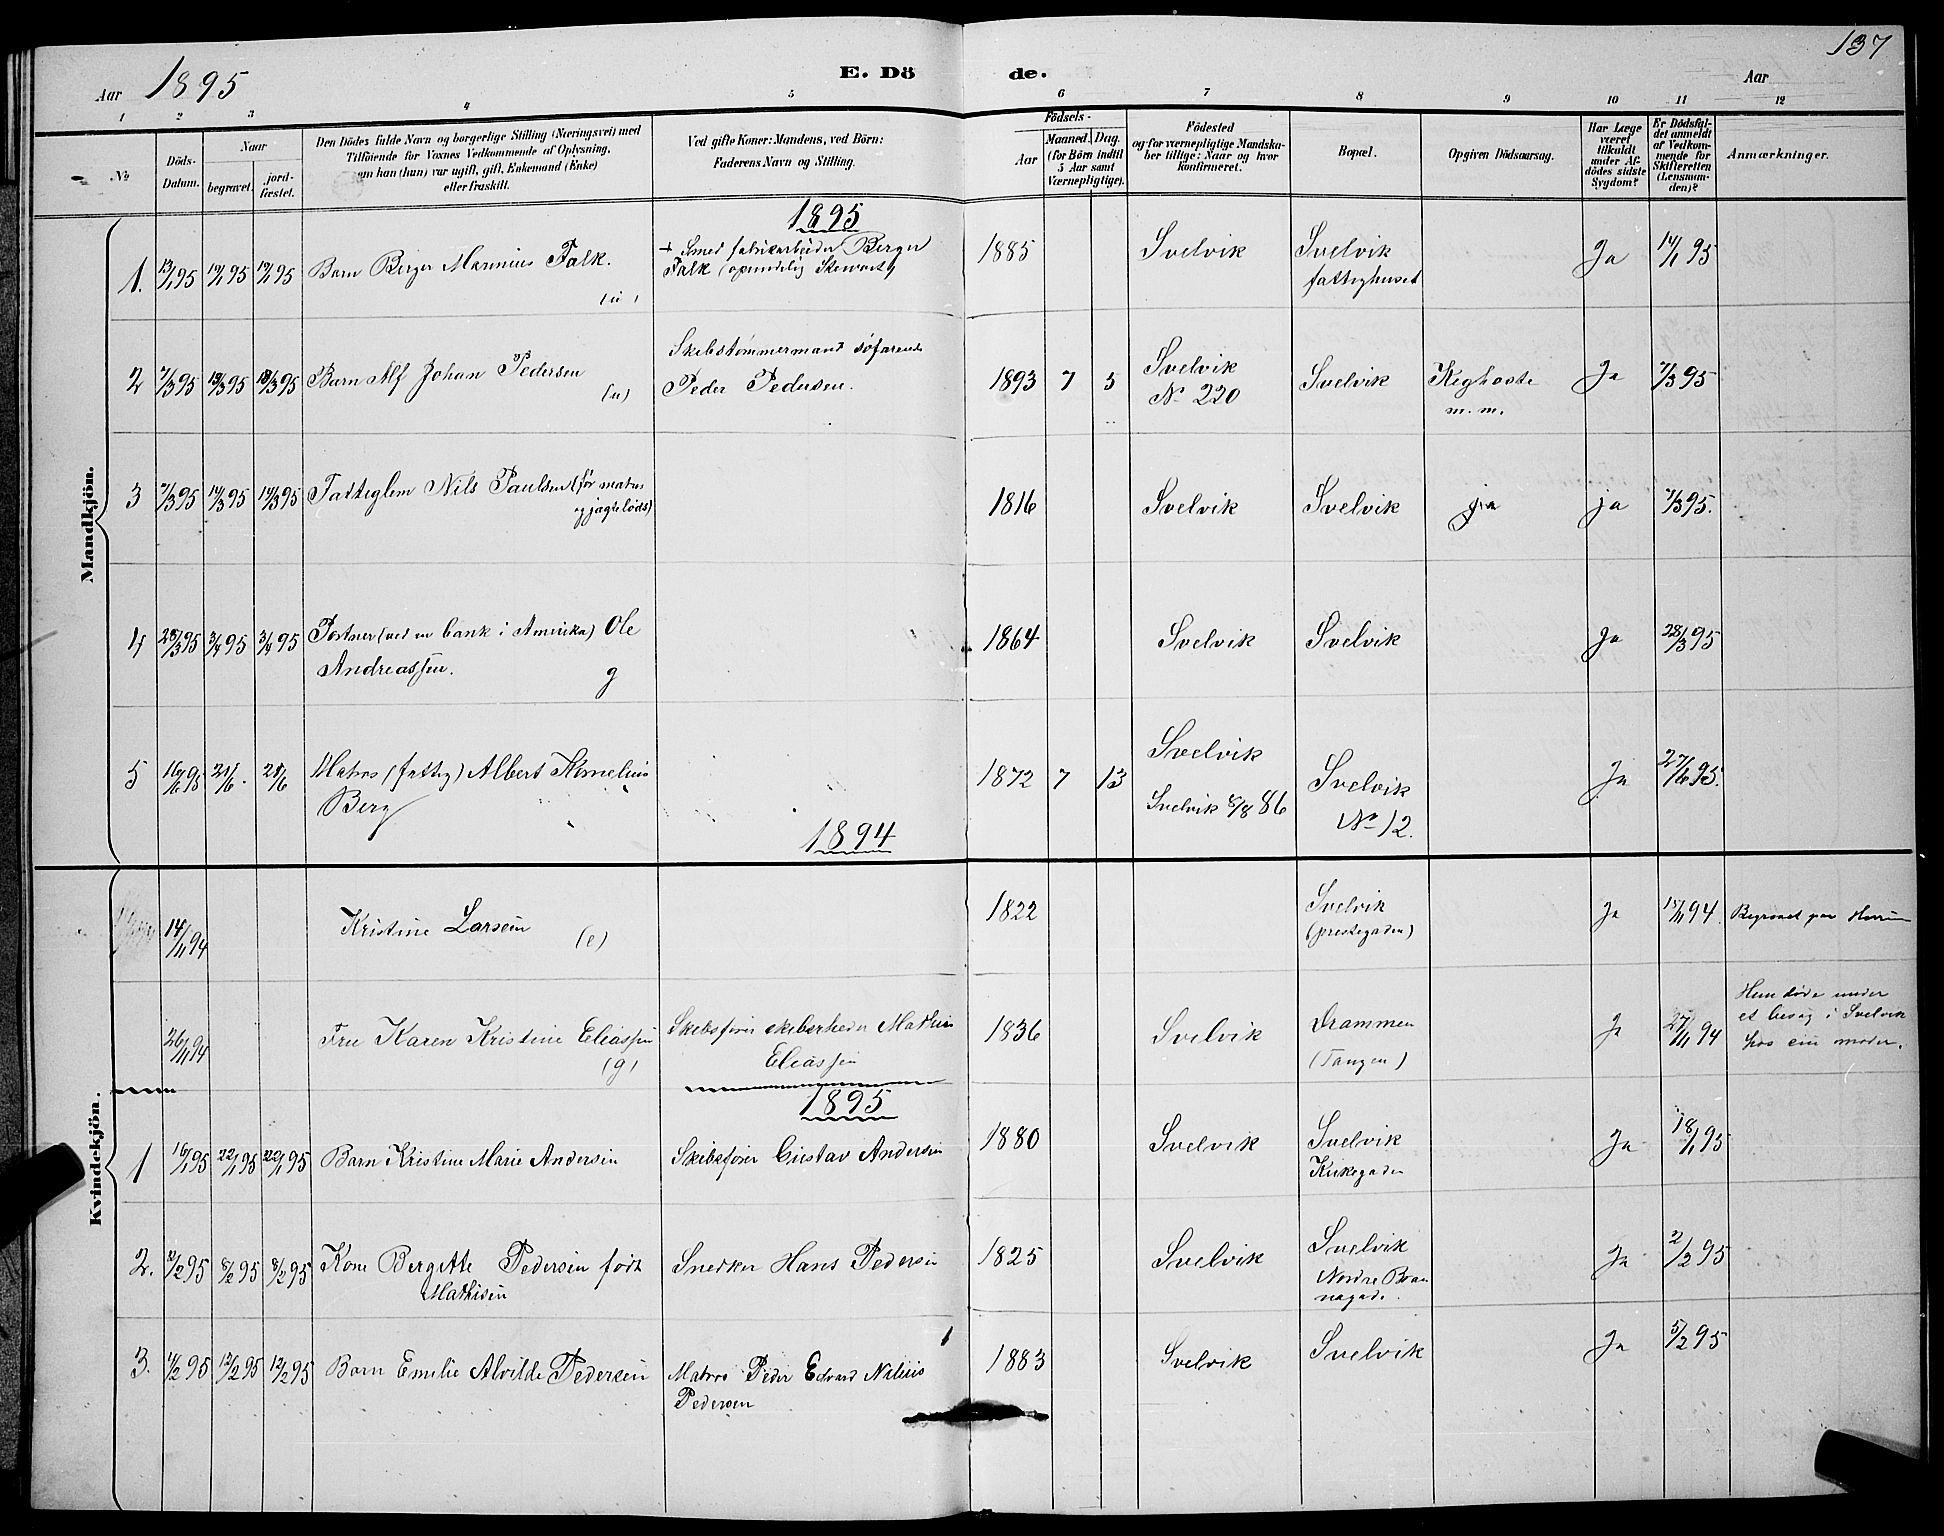 137
Aar 1895 E. Dö de. Aar
1 2 3 4 5 6 7 8 9 10 11 12
No
Döds-
Datum.
Naar
begravet.
jord-
fæstet.
Den Dödes fulde Navn og borgerlige Stilling (Næringsvei) med
Tilföiende for Voxnes Vedkommende af Oplysning,
om han (hun) var ugift, gift, Enkemand (Enke)
eller fraskilt.
Ved gifte Koner: Mandens, ved Börn:
Faderens Navn og Stilling.
Födsels-
Aar
Maaned.
Dag.
(for Börn indtil
5 Aar samt
Værnepligtige).
Födested
og for værnepligtige Mandska-
ber tillige: Naar og hvor
konfirmeret.
Bopæl.
Opgiven Dödsaarsag.
Har Læge
været
tilkaldt
under Af-
dödes sidste
Sygdom?
Er Dödsfal-
det anmeldt
af Vedkom-
mende for
Skifteretten
(Lensman-
den)?
Anmærkninger.
Mandkjön.
1895
1. 13/1 95 19/1 95 19/1 95 Barn Berger Marinius Falk. + Smed fabrikarbeider Berger 1885 Svelvik Svelvik Ja 14/1 95
(u) Falk fattighuset
Skibstømmermand søfarende
2 7/3 95 13/3 95 13/3 95 Barn Alf Johan Pedersen Peder Pedersen. 1893 7 5 Svelvik Svelvik Kighoste Ja 7/3 95
(u) No 220 m.m.
3 7/3 95 14/3 95 14/3 95 Fattiglem Nils Paulsen (før matros 1816 Svelvik Svelvik ja ja 7/3 95.
og jagtelods)
4 28/3 95 3/4 95 3/4 95 Portner (ved en bank i Amerika) Ole 1864 Svelvik Svelvik Ja 28/3 95
Andreassen. g
5 16/6 95 21/6. 21/6 Matros (fattig) Albert Kornelius 1872 7 13 Svelvik Svelvik Ja 27/6 95.
Berg Svelvik 8/8 86 No 12.
1894
Kvindekjön.
14/11 94 Kristine Larsen (e) 1822 Svelvik Ja 15/11 94. Begravet paa
(prestegaden)
26/11 94 Fru Karen Kristine Eliassen Skibsfører skibsrheder Mathias 1836 Svelvik Drammen Ja 27/11 94 Hun døde under
(g) Eliassen (Tangen) et besøg i Svelvik
hos sin moder.
1895
1 16/1 95 22/1 95 22/1 95 Barn Kristine Marie Andersen Skibsfører Gustav Andersen 1880 Svelvik Svelvik Ja 18/1 95
Kirkegaden
2. 2/2 95 8/2 95 8/2 95 Kone Bergitte Pedersen født Snedker Hans Pedersen 1825 Svelvik Svelvik Ja 2/2 95
Mathisen Nordre Bran
nagade.
3. 4/2 95 12/2 95 12/2 95 Barn Emilie Alvilde Pedersen Matros Peder Edvard Nilius 1883 Svelvik Svelvik Ja 5/2 95
Pedersen